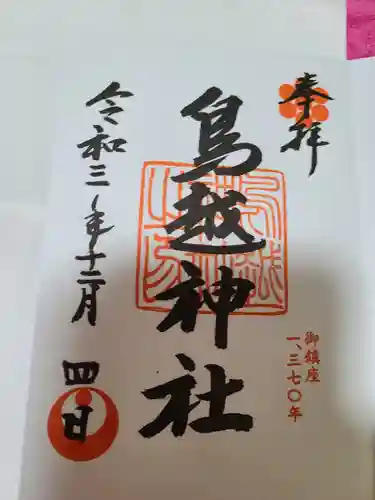 奉拝
鳥越神社
御鎮座
一、三七〇年
令和三年十二月四日